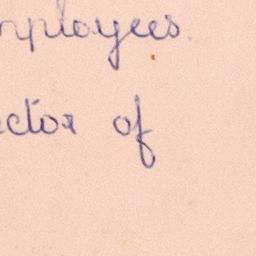 mployees
ector of